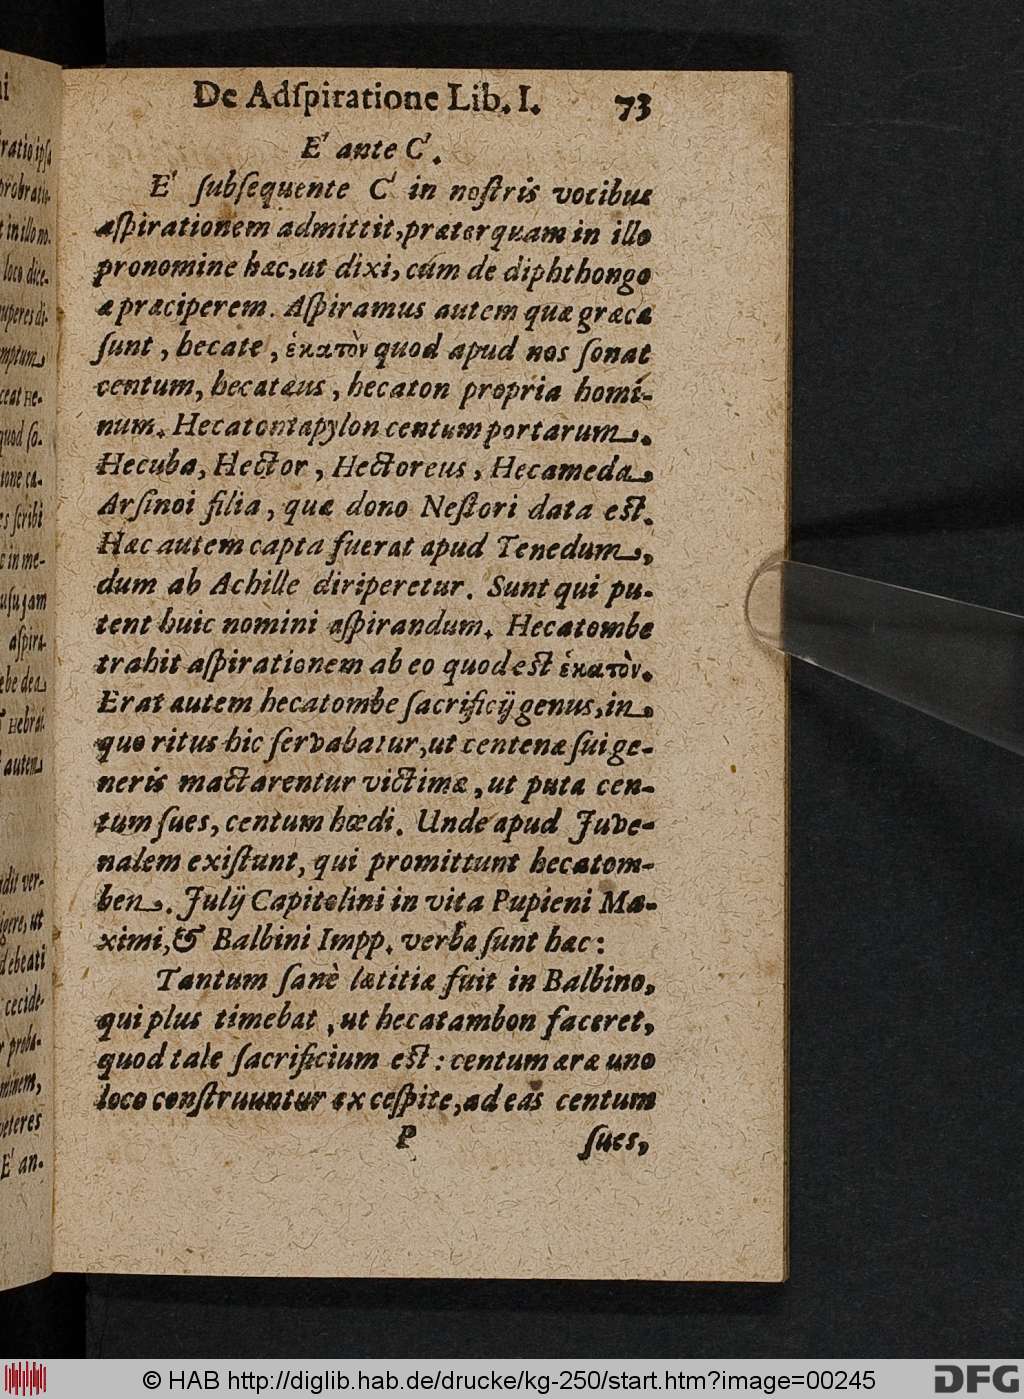 De Adſpiratione Lib. I. 73
E' ante C'.
E' ſubſequente C' in noſtris vocibus
aſpirationem admittit, præterquam in illo
pronomine hæc, ut dixi, cúm de diphthongo
æ præciperem. Aſpiramus autem quæ græca
ſunt, hecate, ἑκατὸν quod apud nos ſonat
centum, hecatæus, hecaton propria homi-
num. Hecatontapylon centum portarum.
Hecuba, Hector, Hectoreus, Hecameda,
Arſinoi filia, quæ dono Neſtori data eſt.
Hæc autem capta fuerat apud Tenedum,
dum ab Achille diriperetur. Sunt qui pu-
tent huic nomini aſpirandum. Hecatombe
trahit aſpirationem ab eo quod eſt ἑκατὸν.
Erat autem hecatombe ſacrificij genus, in
quo ritus hic ſervabatur, ut centenæ ſui ge-
neris mactarentur victimæ, ut puta cen-
tum ſues, centum hœdi. Unde apud Juve-
nalem exiſtunt, qui promittunt hecatom-
ben. Julij Capitolini in vita Pupieni Ma-
ximi, & Balbini Impp. verba ſunt hæc:
Tantum ſanè lætitiæ fuit in Balbino,
qui plus timebat, ut hecatambon faceret,
quod tale ſacrificium eſt: centum aræ uno
loco conſtruuntur ex ceſpite, ad eas centum
P ſues,
ratio ipſa
probratio-
t in illo no-
loco dice-
ceat He-
quod ſo-
ione ca-
es ſcribi
c in me-
uſu jam
aſpira-
ebe dea
Hebrai-
autem
dit ver-
igere, ut
debeati
cecide-
r proba-
minem,
veteres
E' an-
© HAB http://diglib.hab.de/drucke/kg-250/start.htm?image=00245
DFG